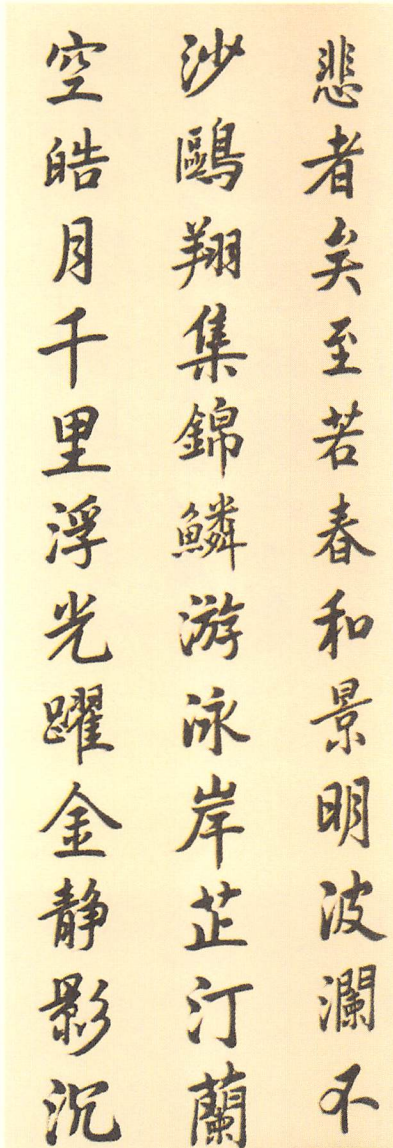 悲者矣至若春和景明波瀾不
沙鷗翔集錦鱗游泳岸芷汀蘭
空皓月千里浮光躍金静影沉